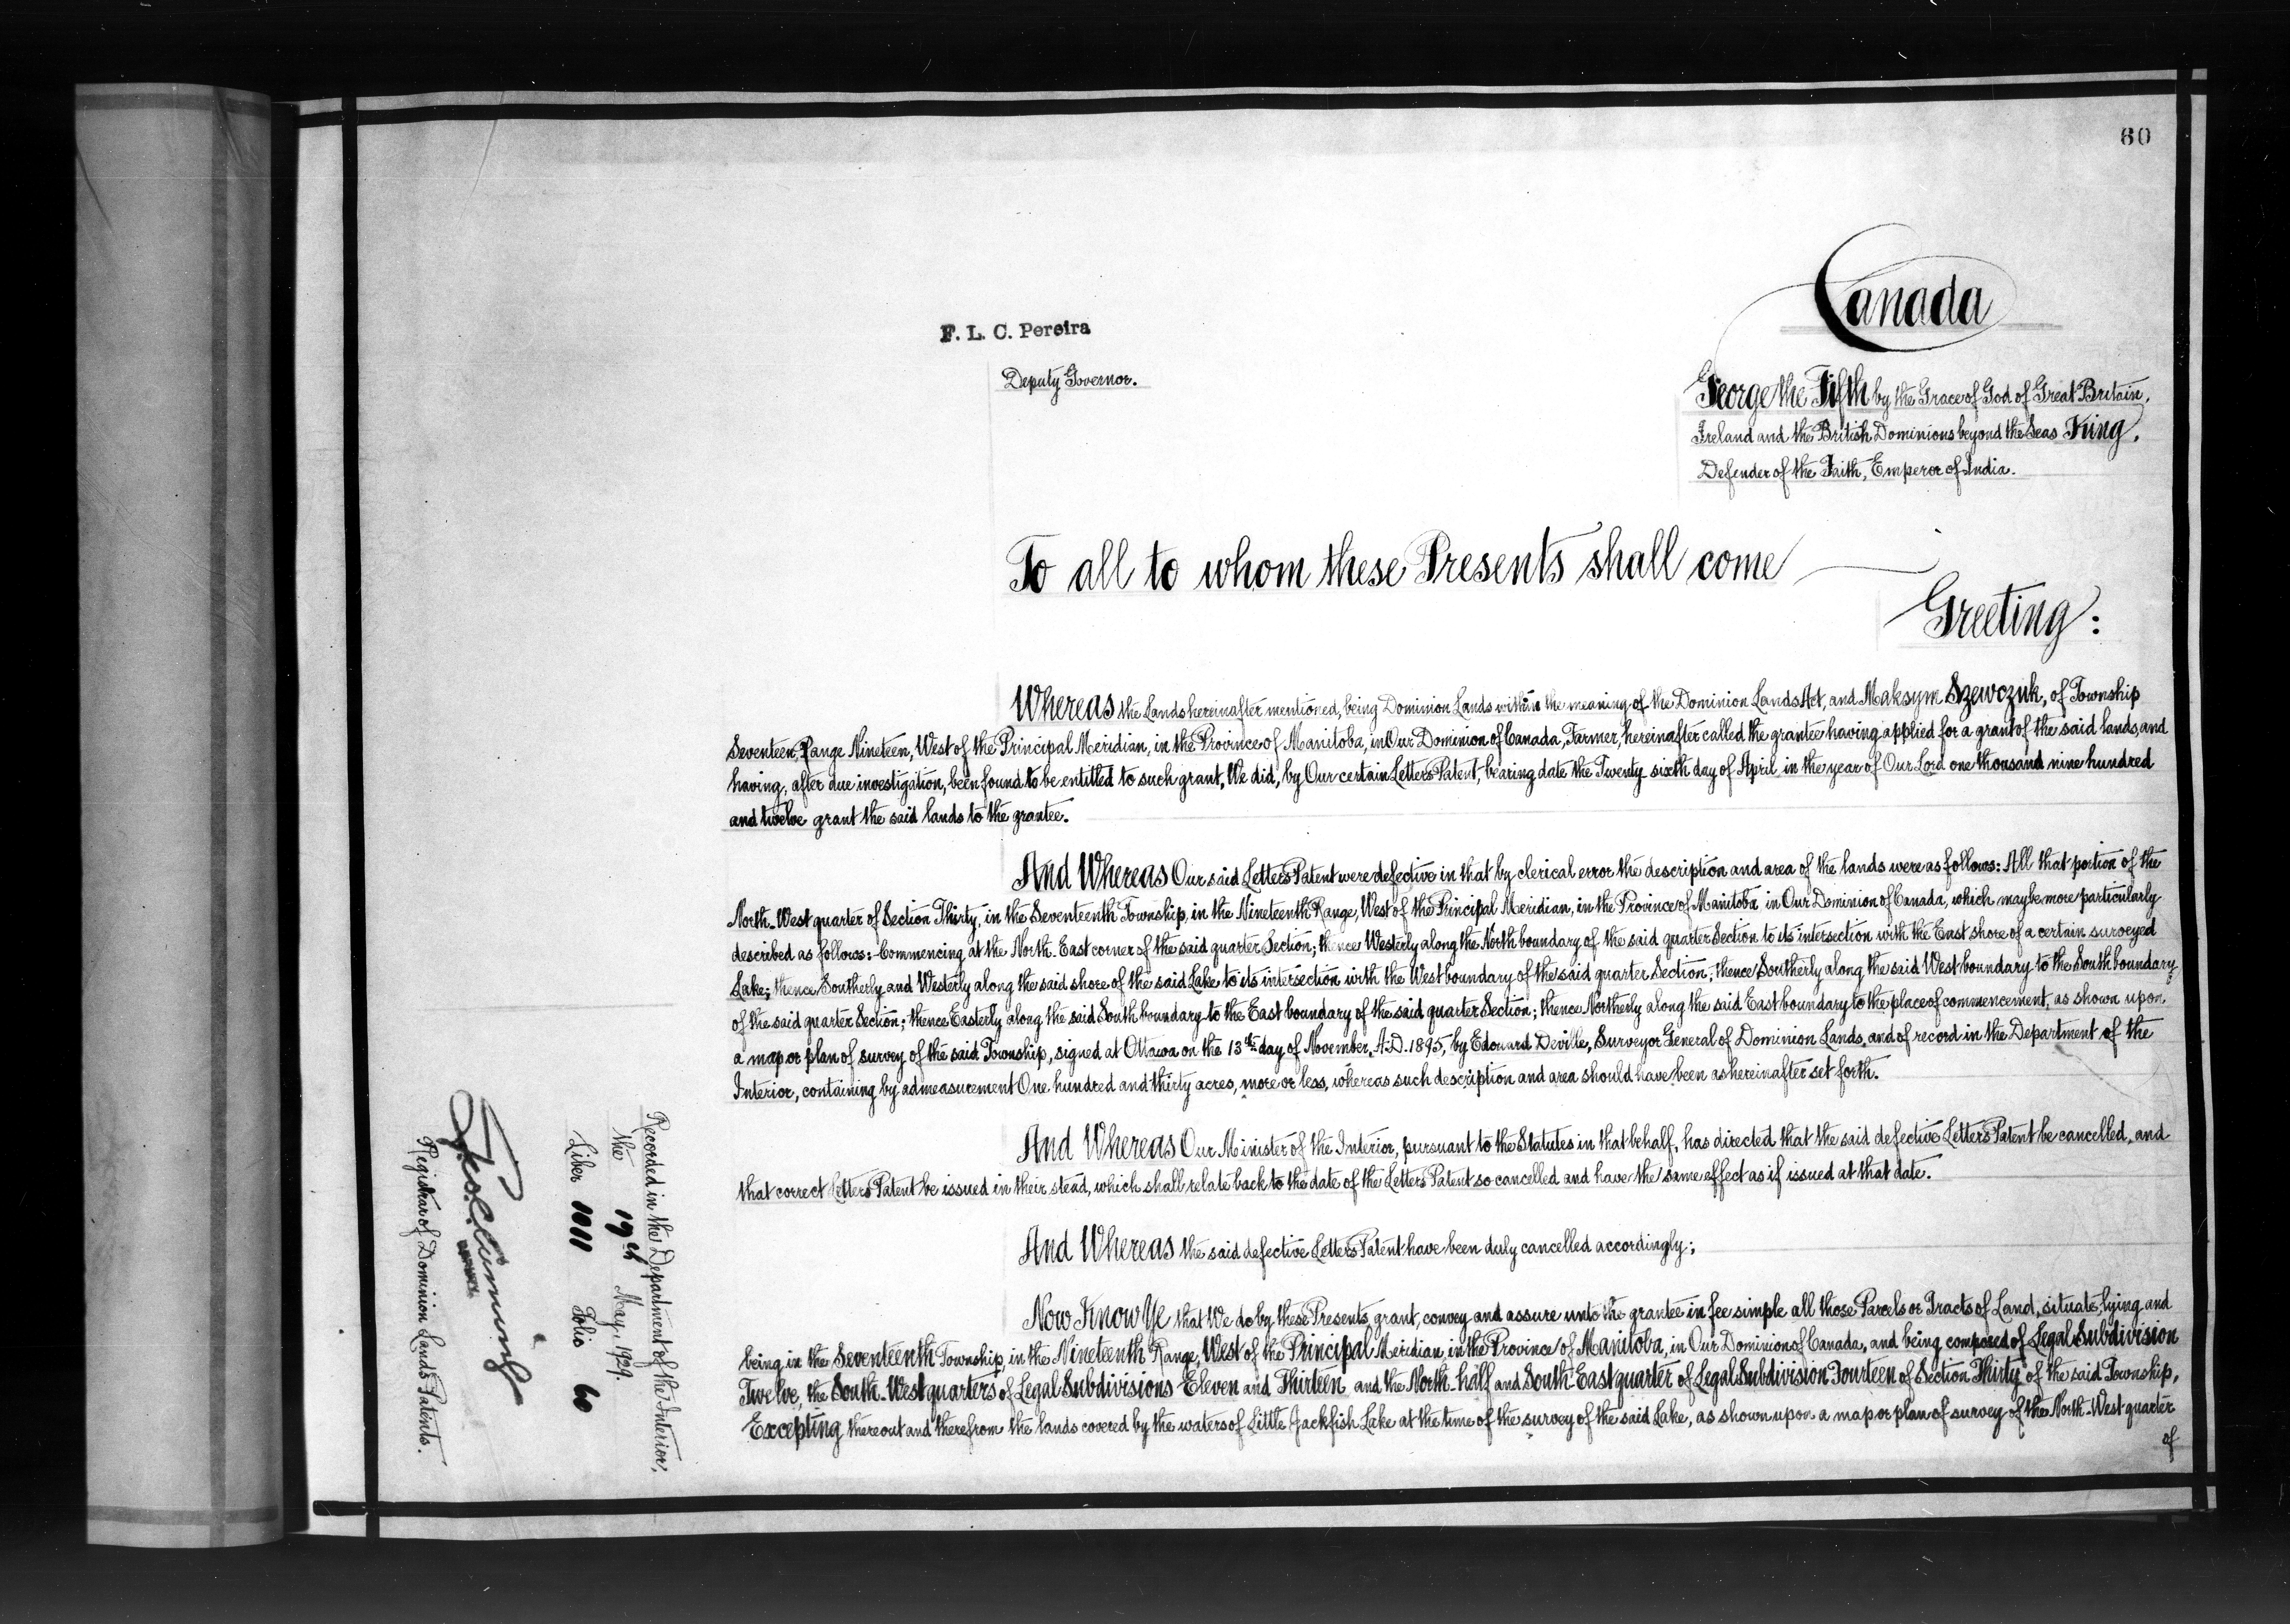 60
Canada
F. L. C. Pereira
Deputy Governor.
George the Fifth by the Grace of God of Great Britain,
Ireland and the British Dominions beyond the Seas King,
Defender of the Faith, Emperor of India.
To all to whom these Presents shall come
Greeting:
Whereas the Lands hereinafter mentioned, being Dominion Lands within the meaning of the Dominion Lands Act, and Maksym Szewczuk, of Township
Seventeen, Range Nineteen, West of the Principal Meridian, in the Province of Manitoba, in Our Dominion of Canada, Farmer, hereinafter called the grantee having applied for a grant of the said lands, and
having, after due investigation, been found to be entitled to such grant, We did, by Our certain Letters Patent, bearing date the Twenty sixth day of April in the year of Our Lord one thousand nine hundred
and twelve grant the said lands to the grantee.
And Whereas Our said Letters Patent were defective in that by clerical error the description and area of the lands were as follows: All that portion of the
North-West quarter of Section Thirty, in the Seventeenth Township, in the Nineteenth Range, West of the Principal Meridian, in the Province of Manitoba in Our Dominion of Canada, which may be more particularly
described as follows:- Commencing at the North-East corner of the said quarter Section; thence Westerly along the North boundary of the said quarter Section to its intersection with the East shore of a certain surveyed
Lake; thence Southerly and Westerly along the said shore of the said Lake to its intersection with the West boundary of the said quarter Section; thence Southerly along the said West boundary to the South boundary
of the said quarter Section; thence Easterly along the said South boundary to the East boundary of the said quarter Section; thence Northerly along the said East boundary to the place of commencement, as shown upon
a map or plan of survey of the said Township, signed at Ottawa on the 13th day of November, A.D. 1895, by Edouard Deville, Surveyor General of Dominion Lands, and of record in the Department of the
Interior, containing by admeasurement One hundred and thirty acres, more or less, whereas such description and area should have been as hereinafter set forth.
And Whereas Our Minister of the Interior, pursuant to the Statutes in that behalf, has directed that the said defective Letters Patent be cancelled, and
that correct Letters Patent be issued in their stead, which shall relate back to the date of the Letters Patent so cancelled and have the same effect as if issued at that date.
And Whereas the said defective Letters Patent have been duly cancelled accordingly;
Now Know Ye that We do by these Presents, grant, convey and assure unto the grantee in fee simple all those Parcels or Tracts of Land, situate, lying and
being in the Seventeenth Township, in the Nineteenth Range, West of the Principal Meridian, in the Province of Manitoba, in Our Dominion of Canada, and being composed of Legal Subdivision
Twelve, the South-West quarters of Legal Subdivisions Eleven and Thirteen and the North-half and South-East quarter of Legal Subdivision Fourteen of Section Thirty of the said Township,
Excepting thereout and therefrom the lands covered by the waters of Little Jackfish Lake at the time of the survey of the said Lake, as shown upon a map or plan of survey of the North-West quarter
of
Recorded in the Department of the Interior,
the 19th May, 1929.
Liber 1011 Folio 60
Registrar of Dominion Lands Patents.